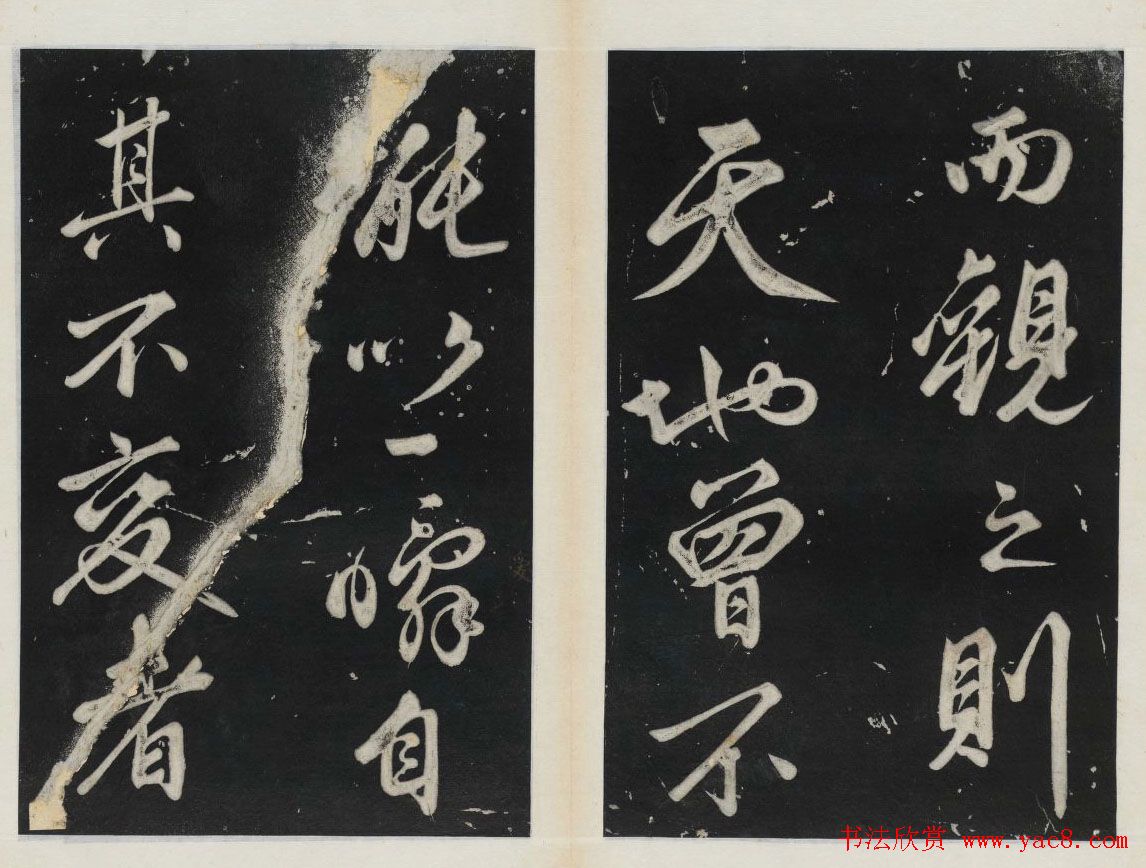 而觀之則
天地曾不
能以一瞬自
其不變者
书法欣赏 www.yac8.com